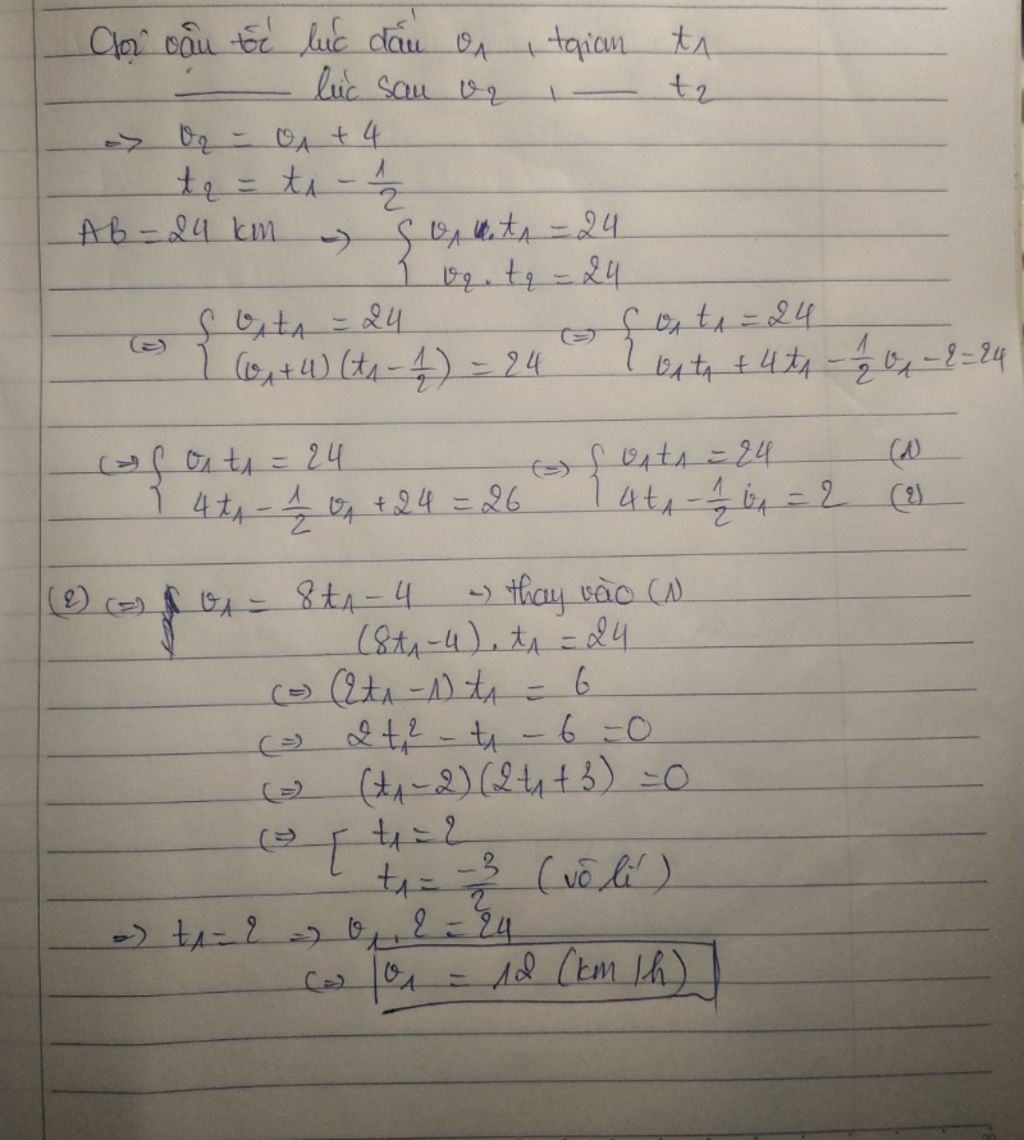 Gọi vận tốc lúc đầu v₁, tgian t₁
——— lúc sau v₂, —— t₂
=> v₂ = v₁ + 4
t₂ = t₁ - 1/2
AB = 24 km -> { v₁ . t₁ = 24
v₂ . t₂ = 24
(=> { v₁t₁ = 24 (=> { v₁ t₁ = 24
(v₁+4)(t₁ - 1/2) = 24 v₁t₁ + 4t₁ - 1/2 v₁ - 2 = 24
(=> { v₁ t₁ = 24 (=> { v₁t₁ = 24 (1)
4t₁ - 1/2 v₁ + 24 = 26 4t₁ - 1/2 v₁ = 2 (2)
(2) (=> v₁ = 8t₁ - 4 -> thay vào (1)
(8t₁ - 4) . t₁ = 24
(=> (2t₁ - 1) t₁ = 6
(=> 2t₁² - t₁ - 6 = 0
(=> (t₁ - 2)(2t₁ + 3) = 0
(=> [ t₁ = 2
t₁ = -3/2 (vô lí)
=> t₁ = 2 => v₁ . 2 = 24
(=> v₁ = 12 (km/h)